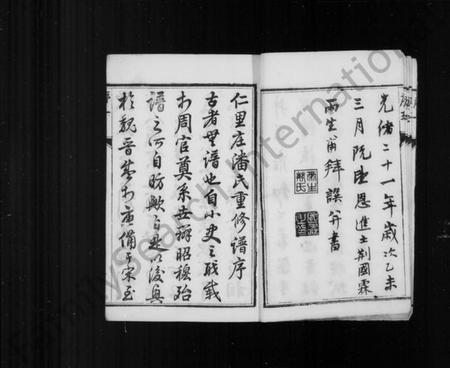 光緒二十一年歲次乙未
三月既望恩進士荊國霖
雨生甫拜譔并書
仁里庄潘氏重修譜序
古者無譜也自小史之職載
於周官奠系世辨昭穆殆
譜之所自昉歟自是以後興
於魏晉盛於唐備于宋至
FamilySearch International